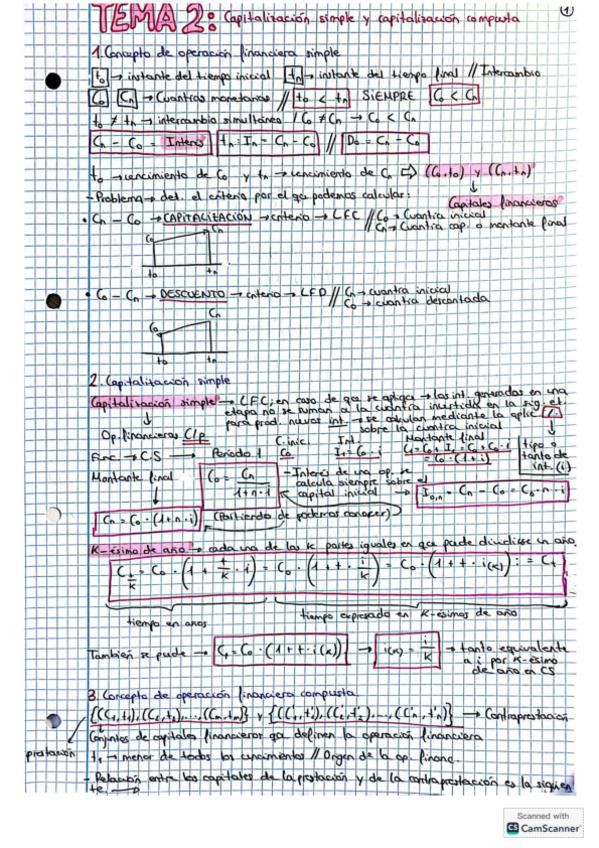 TEMA 2: Capitalización simple y capitalización compuesta
1
1. Concepto de operación financiera simple
t₀ → instante del tiempo inicial tn → instante del tiempo final // Intercambio
C₀ Cn → Cuantías monetarias // t₀ < tn SIEMPRE C₀ < Cn
t₀ ≠ tn → intercambio simultáneo / C₀ ≠ Cn → C₀ < Cn
Cn - C₀ = Interés tn: In = Cn - C₀ // D₀ = Cn - C₀
t₀ → vencimiento de C₀ y tn → vencimiento de Cn ⇨ (C₀, t₀) y (Cn, tn)
↓
Capitales financieros
- Problema → det. el criterio por el qa podemos calcular:
• Cn - C₀ → CAPITALIZACIÓN → criterio → LFC // C₀ → Cuantía inicial
Cn → Cuantía cap. o montante final
C₀ Cn
t₀ tn
• C₀ - Cn → DESCUENTO → criterio → LFD // Cn → cuantía inicial
C₀ → cuantía descontada
C₀ Cn
t₀ tn
2. Capitalización simple
Capitalización simple → LFC; en caso de qa se aplique → los int. generados en una
etapa no se suman a la cuantía invertida en la sig. et.
para prod. nuevos int. → se calculan mediante la aplic.
sobre la cuantía inicial
↓
Op. financieras C/p
C. inic. Int. Montante final
Func. → CS → Período 1 C₀ I₁ = C₀ · i C₁ = C₀ + I₁ = C₀ + C₀ · i
= C₀ · (1 + i)
tipo o
tanto de
int. (i)
Montante final
C₀ = Cn / (1 + n · i)
- Interés de una op. se
calcula siempre sobre el
capital inicial → I₀,n = Cn - C₀ = C₀ · n · i
Cn = C₀ · (1 + n · i) (Partiendo de poderlos conocer)
K-ésimo de año → cada una de las k partes iguales en qa puede dividirse un año.
C t/k = C₀ · (1 + t/k · i) = C₀ · (1 + t · i/k) = C₀ · (1 + t · i(k)) := Ct
tiempo en años tiempo expresado en K-ésimos de año
También se puede → Ct = C₀ · (1 + t · i(k)) → i(k) = i/k → tanto equivalente
a i por K-ésimo
de año en CS
3. Concepto de operación financiera compuesta
{(C₁, t₁), (C₂, t₂), ..., (Cm, tm)} y {(C'₁, t'₁), (C'₂, t'₂), ..., (C'n, t'n)} → Contraprestación
prestación
Conjuntos de capitales financieros qa definen la operación financiera
t₁ → menor de todos los vencimientos // Origen de la op. financ.
- Relación entre los capitales de la prestación y de la contraprestación es la siguien
te →
Scanned with
CS CamScanner